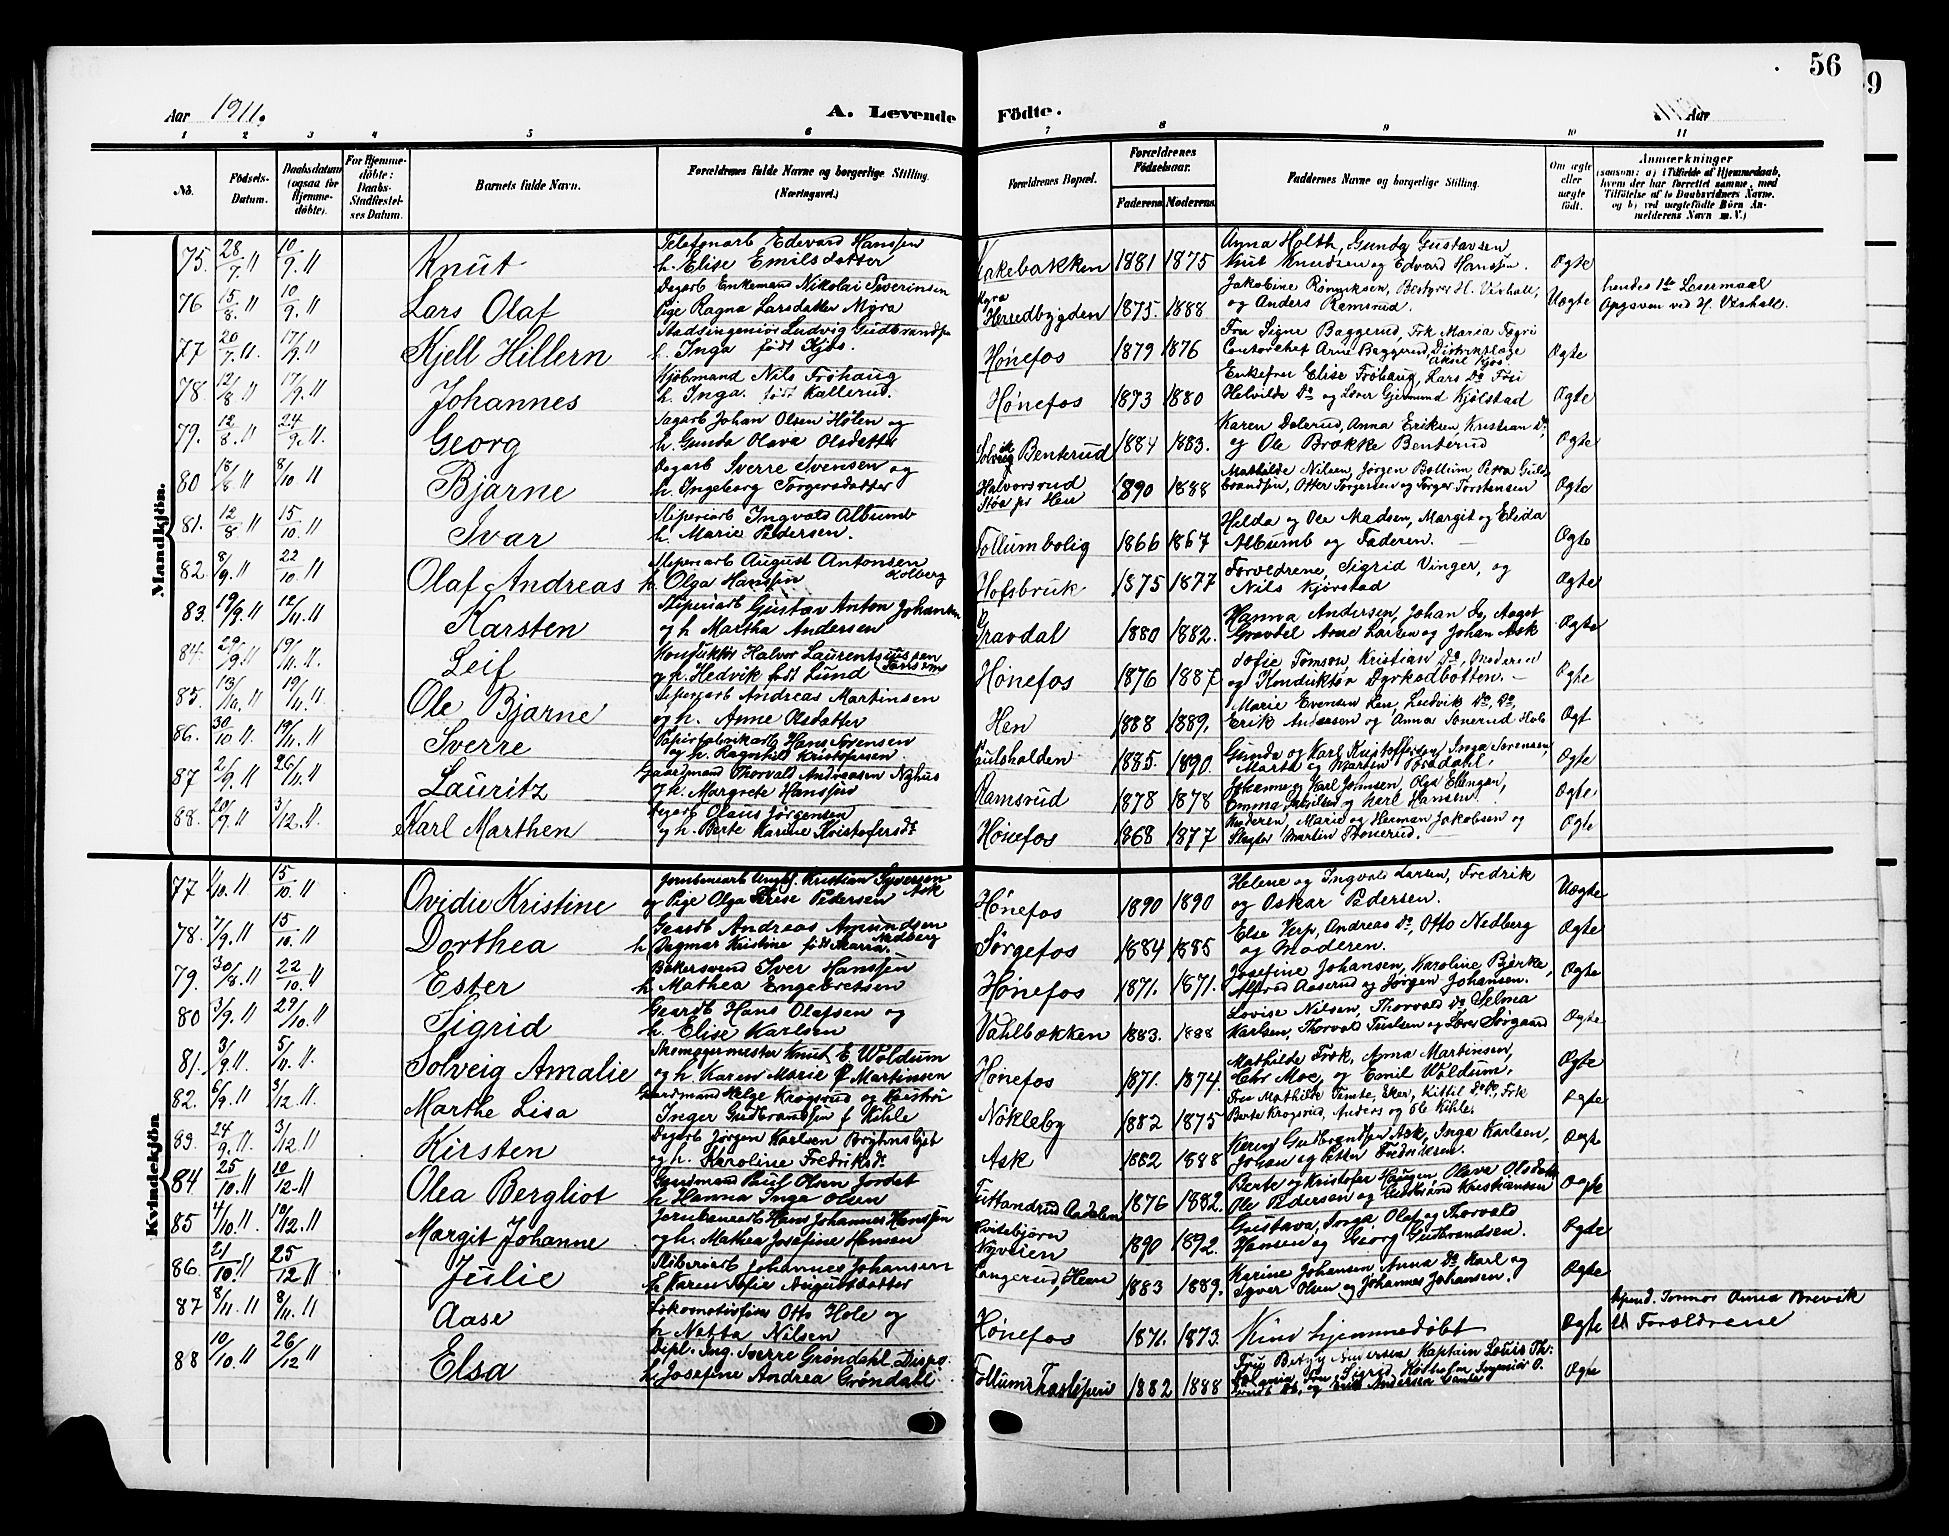 56
9
Aar 1911. A. Levende Födte. Aar
1 2 3 4 5 6 7 8 9 10 11
No. Födsels-Datum. Daabsdatum (ogsaa for Hjemmedöbte). For Hjemmedöbte: Daabs-Stadfæstelses Datum. Barnets fulde Navn. Forældrenes fulde Navne og borgerlige Stilling. (Næringsvei.) Forældrenes Bopæl. Forældrenes Födselsaar. Faderens Moderens Faddernes Navne og borgerlige Stilling. Om ægte eller uægte födt. Anmærkninger
(saasom: a) i Tilfælde af Hjemmedaab, hvem der har forrettet samme, med Tilföielse af to Daabsvidners Navne, og b) ved uægtefödte Börn Anmelderens Navn m. V.)
Mandkjön.
75. 28/7 11 10/9 11 Knut Telefonarb Edevard Hanssen
h. Elise Emilsdatter Kakebakken 1881 1875 Anna Holth, Gunda Gustavsen
Knut Knudsen og Edvard Hanssen. Ægte
76 15/8 11 10/9 11 Lars Olaf Dagarb Enkemand Nikolai Severinsen
Pige Ragna Larsdatter Myra Myra
Herudbygden 1875. 1888 Jakobine Bestyrer H. Vixhall,
og Anders Ramsrud. Uægte hendes 1te Leiermaal
Opgaven ved H. Vixhall.
77 20/7 11. 17/9 11 Kjell Hillern Stadsingeniör Ludvig Gudbrandsen
h. Inga født Kjös. Hönefos 1879 1876 Fru Signe Baggerud, Frk Maria
Contorchef Arne Baggerud, Distriktslæge
Aksel Kjös. Ægte
78. 12/8 11 17/9 11 Johannes Kjöbmand Nils Fröhaug
h. Inga. født Kallerud. Hönefos 1873 1880 Enkefru Elise Fröhaug, Lars Do
Helvilde Do og Lærer Gjermund Kjölstad Ægte
79. 12/8. 11. 24/9. 11. Georg Sagarb Johan Olsen Hølen og
h. Gunda Olava Olsdatter Benterud 1884 1883. Karen Dolerud, Anna Eriksen, Kristian Do,
og Ole Brakke Benterud Ægte
80 18/8 11 8/10 11 Bjarne Dagarb Sverre Svensen og
h. Ingeborg Torgersdatter Halvorsrud
Støa pr Hen 1890 1888 Mathilde Nilsen, Jörgen Bollum, Petra Guldbrandsen,
Otter Torgersen og Torger Torstensen Ægte
81. 12/8 11 15/10. 11 Ivar Sliperiarb Ingvald Albumb
h. Marie Pedersen. Follumbolig 1866 1867 Hilda og Ole Madsen, Margit og Elida
Albumb og Faderen. Ægte
82 8/9. 11 22/10. 11 Olaf Andreas Sliperiarb August Antonsen Kolberg
h. Olga Hanssen Hofsbruk 1875 1877 Forældrene, Sigrid Vinger, og
Nils Kjörstad Ægte
83. 19/9. 11 12/11. 11 Karsten Sliperiarb Gustav Anton Johansen
og h Martha Andersen Gravdal 1880 1882. Hanna Andersen, Johan Do, Aagot
Gravdal Arne Larsen og Johan Ask Ægte
84. 29/9 11 19/11. 11. Leif Konduktör Halvor Laurentsiussen Tomson
og h. Hedvik, født Lund Hönefos 1876 1887 Sofie Tomson, Kristian Do, Moderen
og Konduktör Dyrkedbotten. Ægte
85. 13/10. 11 19/11. 11 Ole Bjarne Sliperiarb Andreas Martinsen
og h. Anne Olsdatter Hen 1888 1889. Marie Evensen Hen, Ludvik Do, Do,
Erik Andersen og Anna Ægt
86. 30/10 11. 19/11. 11 Sverre Papirfabrikarb Hans Sörensen
og h. Ragnhild Kristofersen 1885. 1890. Gunda og Karl Kristoffersen, Inga Sörensen,
Marta og Martin Ægte
87 2/9. 11 26/11. 11 Lauritz Gaardmand Thorvald Andreasen Nyhus
og h. Margrete Hanssen Ramsrud 1878 1878 Johanne og Karl Johnsen, Olga Ellingsen,
Emma og Karl Hansen. Ægte
88. 20/9 11 3/12. 11. Karl Marthen Dagarb Olaus Jørgensen
og h. Berte Karine Kristofersdt Hönefos 1868 1877 Moderen, Marie og Herman Jakobsen og
Slagter Martin Ægte
Kvindekjön
77 1/10. 11 15/10. 11 Ovidie Kristine Jernbanearb Ungk. Kristian Syversen Ask
og Pige Olga Terese Pedersen Hönefos 1890 1890 Helene og Ingvald Larsen, Fredrik
og Oskar Pedersen. Uægte
78. 7/9. 11 15/10. 11 Dorthea Gaardb Andreas Amundsen Nedberg
h Dagmar Kristine født Maria Sørgefos 1884 1885 Else Verp, Andreas Do, Otto Nedberg
og Moderen. Ægte
79. 30/8. 11 22/10. 11 Ester Bakersvend Iver Hanssen
h. Mathea Engebretsen Hönefos 1871. 1871. Josefine Johansen, Karoline Bjerke,
Alfred Aaserud og Jörgen Johansen. Ægte
80 3/9. 11 29/10. 11 Sigrid Gaardb Hans Olafsen og
h. Elise Karlsen Vahlbakken 1883. 1888 Lovise Nilsen, Thorvald Do Selma
Karlsen, Thorvald og Lærer Sörgaard Ægte
81. 3/9. 11 5/11. 11. Solveig Amalie Skomagermester Knut E. Woldum
og h. Karen Marie f Martinsen Hönefos 1871. 1874 Mathilde Anna Martinsen,
Chr Moe, og Emil Woldum. Ægte
82. 6/9. 11 3/12. 11 Marthe Lisa Gaardmand Helge Krogsrud og Hustru
Inger Gudbrandsen f Kihle Nökleby 1882 1875 Fru Mathilde Eker, Kittil Frk
Berte Krogsrud, Anders og Ole Kihle. Ægte
83. 24/9. 11 3/12 11 Kirsten Dagarb Jörgen Karlsen
og h. Karoline Fredriksdt Ask 1882 1888 Karen Gudbrandsen Ask, Inga Karlsen,
Johan og Petter Fredriksen. Ægte
84 25/10 11 10/12. 11 Olea Bergliot Gaardmand Paul Olsen Jordet
h Hanna Inga Olsen Aadalen 1876 1882. Berte og Kristofer Haugen, Olava Olsdatter
Ole Pedersen og Gudbrand Kristiansen Ægte
85 4/10. 11. 10/12. 11 Margit Johanne Jernbanearb Hans Johannes Hanssen
og h. Mathea Josefine Hansen Hvitebjörn
Nyveien 1890 1892. Gustava, Olaf og Thorvald
Hansen og Georg Gudbrandsen. Ægte
86. 21/10. 11 25/12 11 Julie Sliberiarb Johannes Johansen
h Karen Sofie Augustdatter Langerud, Hen 1883 1889. Karine Johansen Anna Do Karl og
Syver Olsen og Johannes Johansen. Ægte
87 8/11. 11 8/11. 11 Aase Lokomotivförer Otto Hole og
h Netta Nilsen Hönefos 1871. 1873. Kun hjemmedöbt Ægte Hjemd. Jormor Anna Brevik
til Forældrene
88 10/10. 11 26/12 11 Elsa Dipl. Ing. Sverre Gröndahl, Dispo.
h Josefine Andrea Gröndahl Follum Træsliperi 1882 1888 Fru Betzy Andersen Kaptain Louis Th:
Fru Sigrid Ingeniör O.
og Erik Andersen Ægte